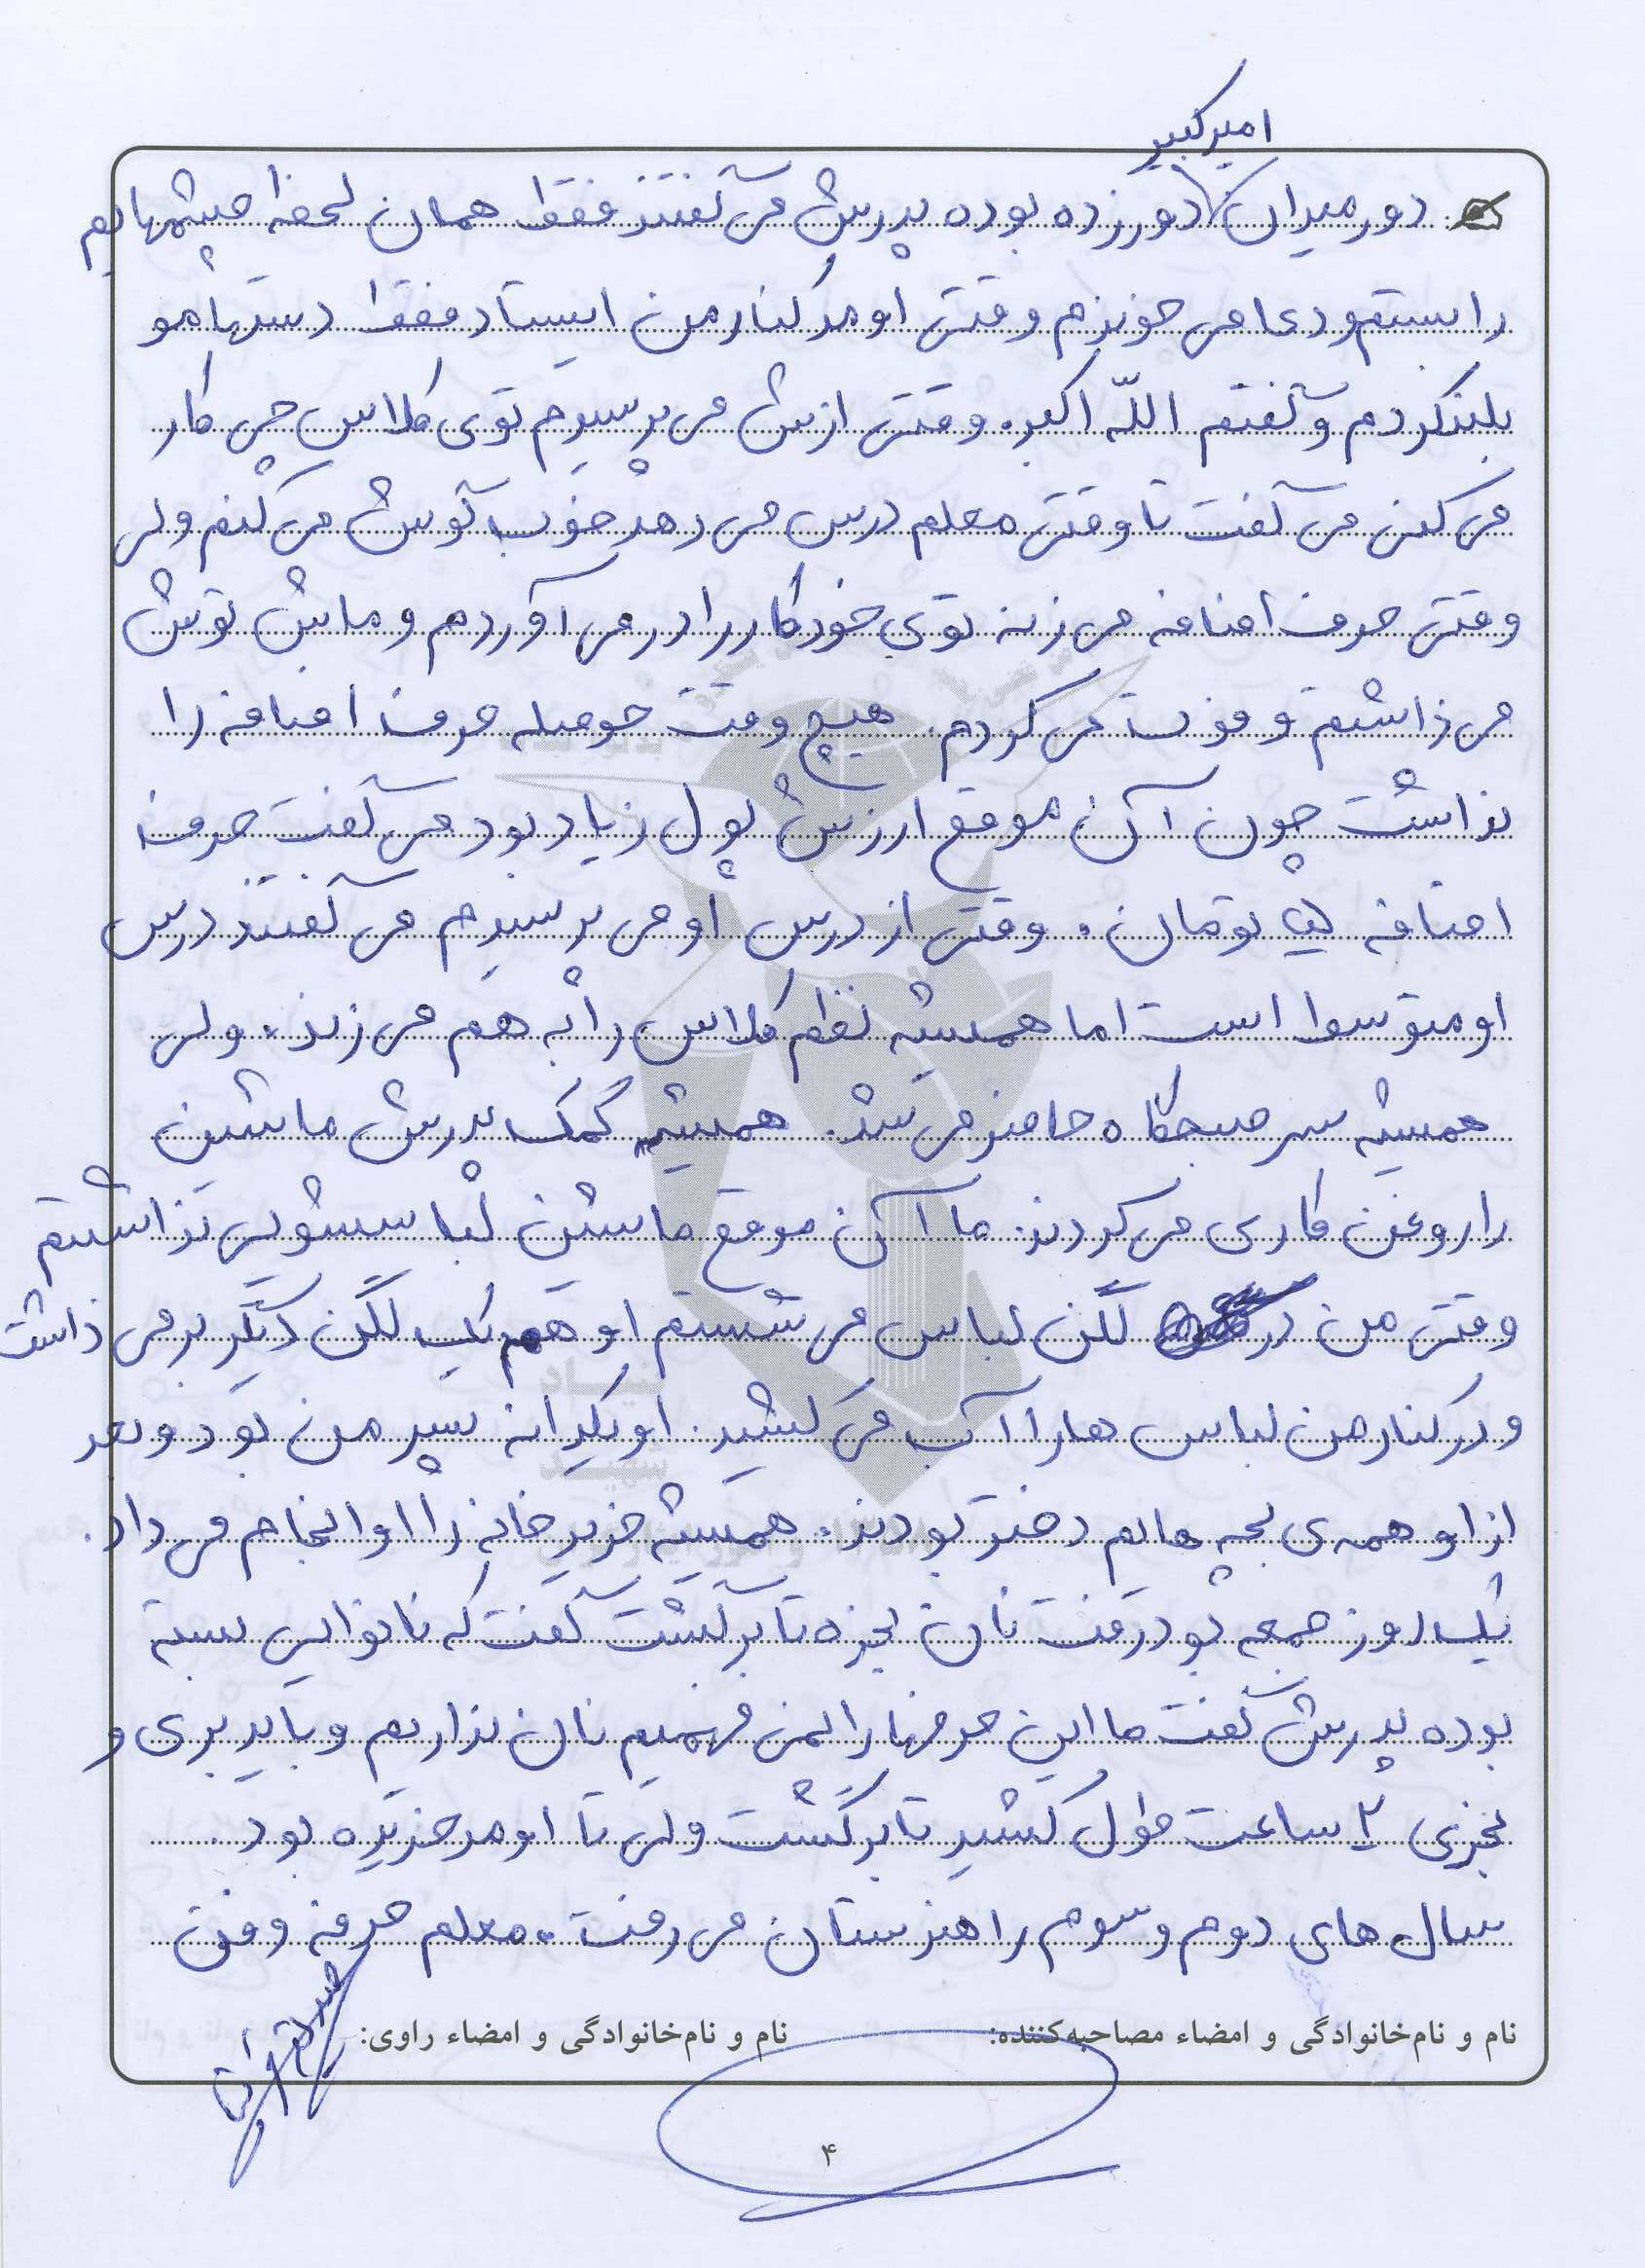 امیرکبیر
دور میدان دور زده بوده پدرش می گفتند فقط همان لحظه چشمهایم
را بستم و دعا می خوندم وقتی اومد کنار من ایستاد فقط دستهامو
بلند کردم و گفتم اللّه اکبر. وقتی ازش می پرسیدم توی کلاس چی کار
می کنی می گفت تا وقتی معلم درس می دهد خوب گوش می کنم ولی
وقتی حرف اضافه می زنه توی خودکار را در می آوردم و ماش توش
می ذاشتم و فوت می کردم. هیچ وقت حوصله حرف اضافه را
نداشت چون آن موقع ارزش پول زیاد بود می گفت حرف
اضافه تومان. وقتی از درس او می پرسیدم می گفتند درس
او متوسط است اما همیشه نظم کلاس را به هم می زند. ولی
همیشه سر صبحگاه حاضر می شد. همیشه کمک پدرش ماشین
را روغن کاری می کردند. ما آن موقع ماشین لباسشویی نداشتیم
وقتی من در لگن لباس می شستم او هم یک لگن دیگر بر می ذاشت
و در کنار من لباس ها را آب می کشید. او یکدانه پسر من بود و بعد
از او همه ی بچه هایم دختر بودند. همیشه خرید خانه را او انجام می داد.
یک روز جمعه بود رفت نان بخره تا برگشت گفت که نانوایی بسته
بوده پدرش گفت ما این حرفها را نمی فهمیم نان نداریم و باید بری و
بخری ۲ ساعت طول کشید تا برگشت ولی تا اومد خریده بود.
سال های دوم و سوم را هنرستان می رفت. معلم حرفه و فن
نام و نام‌خانوادگی و امضاء مصاحبه‌کننده:
نام و نام‌خانوادگی و امضاء راوی:
۴